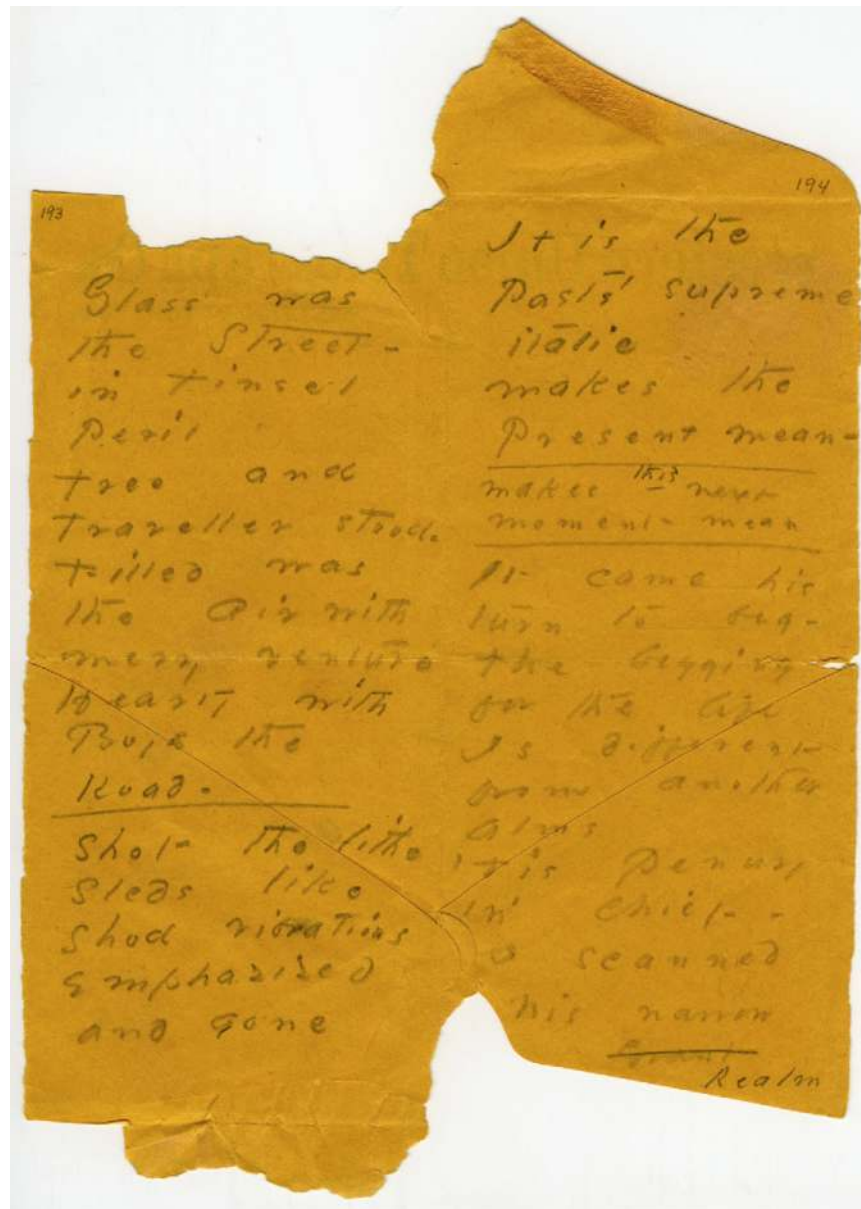 193
Glass was
the Street -
in tinsel
Peril
tree and
traveller stood.
filled was
the Air with
merry venture
Hearty with
Boys the
Road.
Shot the lithe
Sleds like
Shod vibrations
Emphasized
and gone
194
It is the
Pasts' supreme
italic
makes the
Present mean -
makes this new
moment mean
It came his
turn to beg -
the begging
for the life
Is different
from another
Alms
'tis Penury
in Chief -
scanned
his narrow
Realm